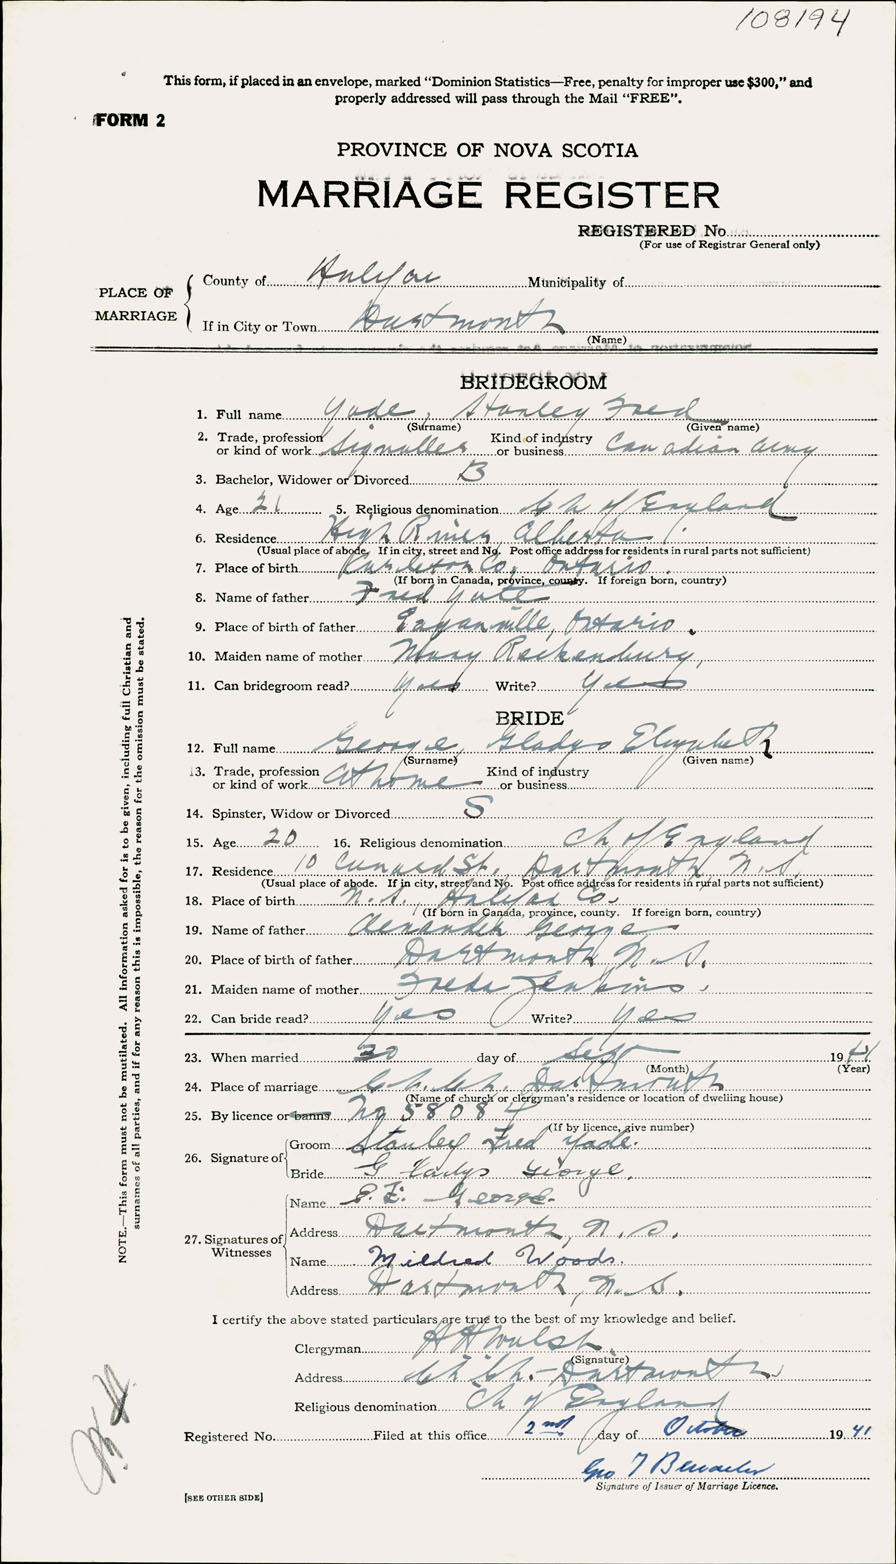 108194
This form, if placed in an envelope, marked “Dominion Statistics—Free, penalty for improper use $300,” and
properly addressed will pass through the Mail “FREE”.
FORM 2
PROVINCE OF NOVA SCOTIA
MARRIAGE REGISTER
REGISTERED No
(For use of Registrar General only)
PLACE OF MARRIAGE
County of Halifax Municipality of
If in City or Town Dartmouth
(Name)
BRIDEGROOM
1. Full name Yade, Stanley Fred
(Surname) (Given name)
2. Trade, profession or kind of work Signaller Kind of industry or business Canadian Army
3. Bachelor, Widower or Divorced B
4. Age 21 5. Religious denomination Ch of England
6. Residence High River, Alberta
(Usual place of abode. If in city, street and No. Post office address for residents in rural parts not sufficient)
7. Place of birth Carleton Co, Ontario.
(If born in Canada, province, county. If foreign born, country)
8. Name of father Fred
9. Place of birth of father Eganville, Ontario.
10. Maiden name of mother Mary
11. Can bridegroom read? Yes Write? Yes
BRIDE
12. Full name George, Gladys Elizabeth
(Surname) (Given name)
13. Trade, profession or kind of work At home Kind of industry or business
14. Spinster, Widow or Divorced S
15. Age 20 16. Religious denomination Ch of England
17. Residence 10 Cunard St., Dartmouth N.S.
(Usual place of abode. If in city, street and No. Post office address for residents in rural parts not sufficient)
18. Place of birth N.S., Halifax Co.
(If born in Canada, province, county. If foreign born, country)
19. Name of father Alexander George
20. Place of birth of father Dartmouth N.S.
21. Maiden name of mother Freda Jenkins.
22. Can bride read? Yes Write? Yes
23. When married 30 day of Sept 1941
(Month) (Year)
24. Place of marriage Ch. Ch. Dartmouth
(Name of church or clergyman's residence or location of dwelling house)
25. By licence or banns No 58084
(If by licence, give number)
26. Signature of Groom Stanley Fred Yade.
Bride Gladys George.
27. Signatures of Witnesses
Name E. E. George.
Address Dartmouth, N.S.
Name Mildred Woods.
Address Dartmouth, N.S.
I certify the above stated particulars are true to the best of my knowledge and belief.
Clergyman
(Signature)
Address Ch. Ch. - Dartmouth
Religious denomination Ch of England
Registered No. Filed at this office 2nd day of October 1941
Geo T
Signature of Issuer of Marriage Licence.
[SEE OTHER SIDE]
NOTE.—This form must not be mutilated. All information asked for is to be given, including full Christian and
surnames of all parties, and if for any reason this is impossible, the reason for the omission must be stated.